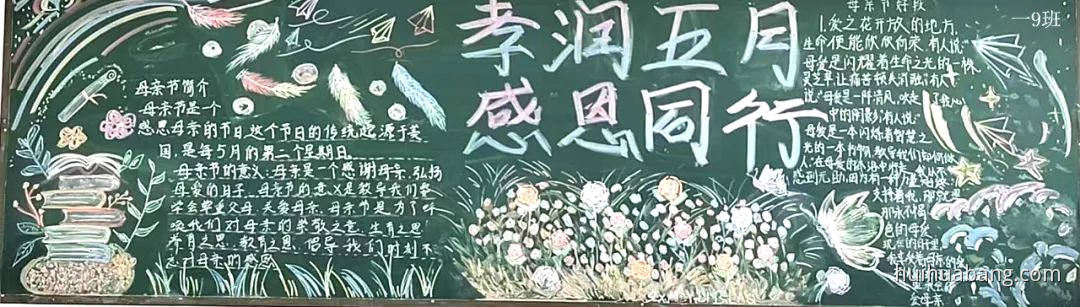 孝润五月
感恩同行
母亲节简介
母亲节是一个
感恩母亲的节日这个节日的传统起源于英
国,是每5月的第二个星期日
母亲节的意义:母亲是一个感谢母亲,弘扬
母爱的日子,母亲节的意义是教导我们要
学会尊重父母 关爱母亲,母亲节是为了呼
我们对母亲的崇敬之意,生育之恩
养育之恩,教育之恩,倡导我们时刻不
母亲
母亲节好段
1.爱之花开放的地方,
生命便能欣欣向荣 有人说
母爱是闪耀着生命之光的一株
灵芝草,让痛苦
说母爱是一阵清风,吹走了我心
中的 有人说
母爱是一本闪烁着智慧之
光的一本书 教导我们如何做
人
支持着我,
色的母爱
一9班
huihuabang.com